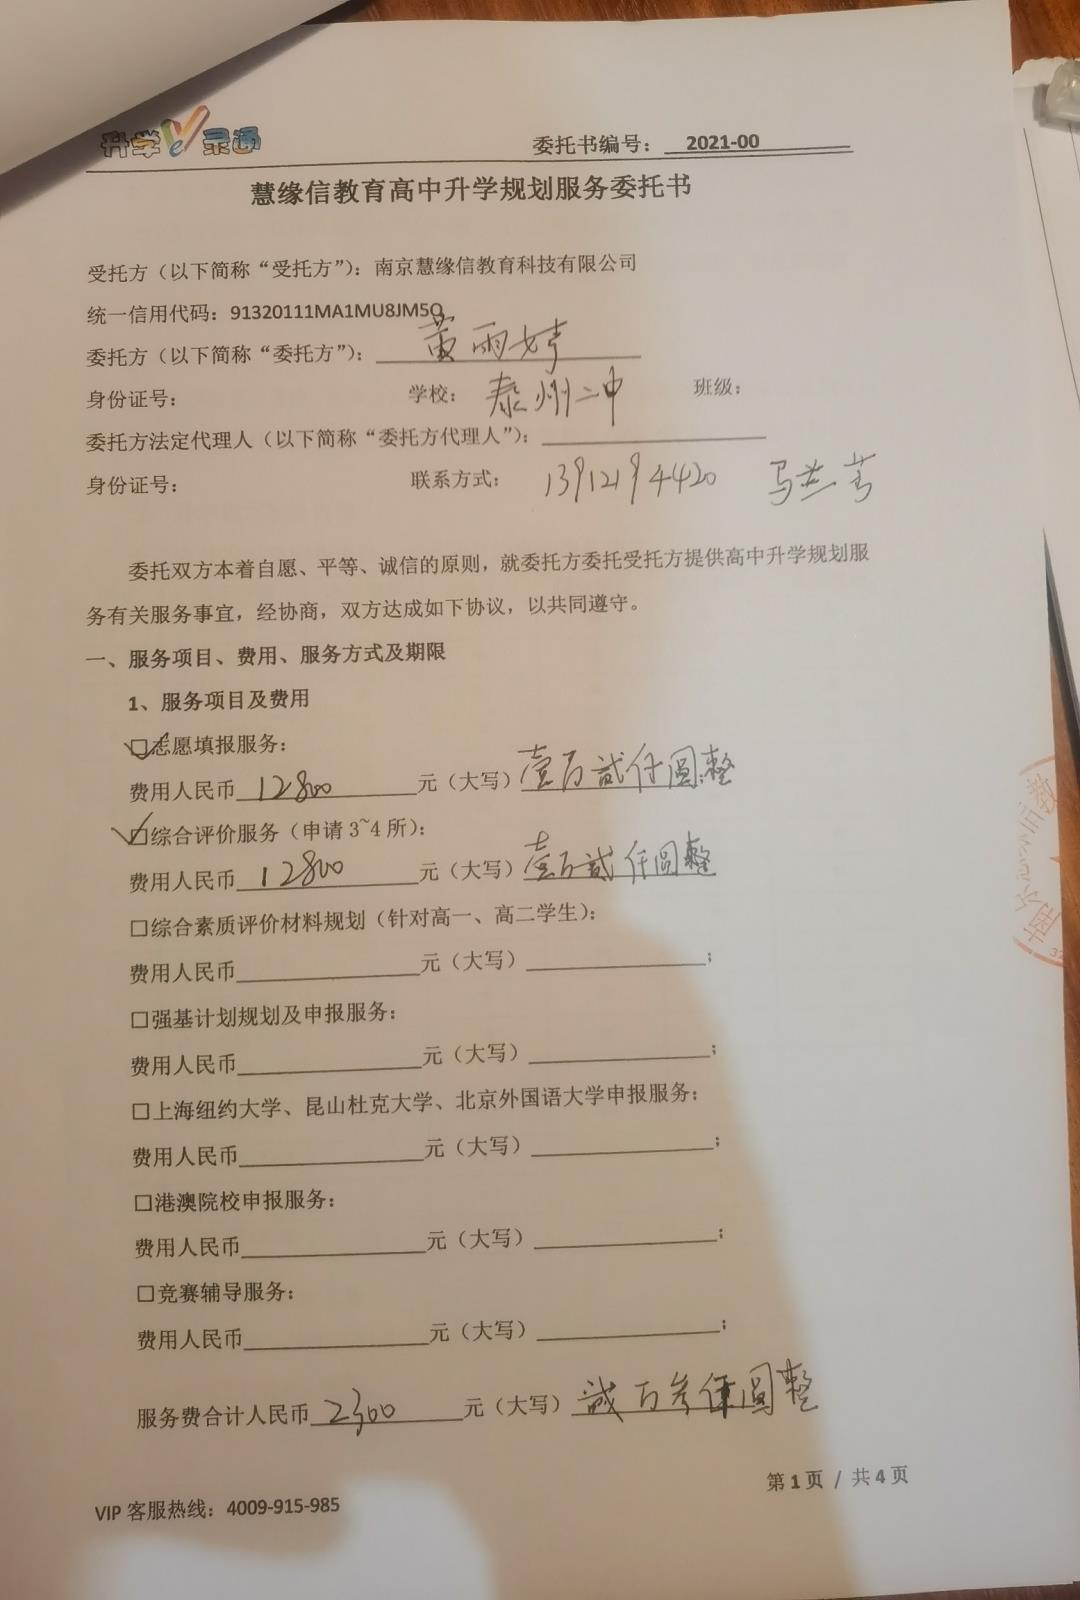 升学e录通 委托书编号： 2021-00
慧缘信教育高中升学规划服务委托书
受托方（以下简称“受托方”）：南京慧缘信教育科技有限公司
统一信用代码：91320111MA1MU8JM5Q
委托方（以下简称“委托方”）： 黄雨婷
身份证号： 学校： 泰州二中 班级：
委托方法定代理人（以下简称“委托方代理人”）：
身份证号： 联系方式： 13912194420 马兰芳
委托双方本着自愿、平等、诚信的原则，就委托方委托受托方提供高中升学规划服
务有关服务事宜，经协商，双方达成如下协议，以共同遵守。
一、服务项目、费用、服务方式及期限
1、服务项目及费用
☑志愿填报服务：
费用人民币 12800 元（大写）壹万贰仟圆整
☑综合评价服务（申请 3~4 所）：
费用人民币 12800 元（大写）壹万贰仟圆整
□综合素质评价材料规划（针对高一、高二学生）：
费用人民币 元（大写） ；
□强基计划规划及申报服务：
费用人民币 元（大写） ；
□上海纽约大学、昆山杜克大学、北京外国语大学申报服务：
费用人民币 元（大写） ；
□港澳院校申报服务：
费用人民币 元（大写） ；
□竞赛辅导服务：
费用人民币 元（大写） ；
服务费合计人民币 2300 元（大写） 贰万叁仟圆整
第 1 页 / 共 4 页
VIP 客服热线：4009-915-985